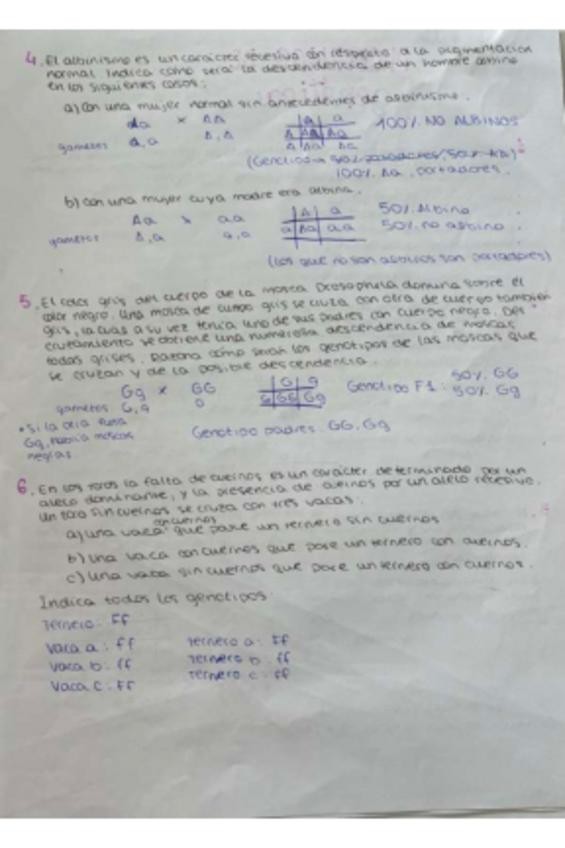 4. El albinismo es un carácter recesivo con respecto a la pigmentación
normal. Indica como será la descendencia de un hombre albino
en los siguientes casos:
a) Con una mujer normal sin antecedentes de albinismo.
aa x AA
A a
100% NO ALBINOS
gametos a,a A,A
A AA Aa
A Aa
100% Aa, portadores.
b) Con una mujer cuya madre era albina.
Aa x aa
A a
50% Albino
gametos A,a a,a
a Aa aa
50% no albino
(Los que no son albinos son portadores)
5. El color gris del cuerpo de la mosca Drosophila domina sobre el
color negro. Una mosca de cuerpo gris se cruza con otra de cuerpo también
gris, la cual a su vez tenía uno de sus padres con cuerpo negro. Del
cruzamiento se obtiene una numerosa descendencia de moscas,
todas grises. Razona cómo serán los genotipos de las moscas que
se cruzan y de la posible descendencia.
Gg x GG
G g
Genotipo F1: 50% GG
50% Gg
gametos G,g G
G GG Gg
*Si la otra fuera
Gg, habría moscas
negras
Genotipo padres: GG, Gg
6. En los toros la falta de cuernos es un carácter determinado por un
alelo dominante, y la presencia de cuernos por un alelo recesivo.
Un toro sin cuernos se cruza con tres vacas.
con cuernos
a) Una vaca que pare un ternero sin cuernos
b) Una vaca con cuernos que pare un ternero con cuernos.
c) Una vaca sin cuernos que pare un ternero con cuernos.
Indica todos los genotipos
Ternero: Ff
Vaca a: ff Ternero a: Ff
Vaca b: ff Ternero b: ff
Vaca c: Ff Ternero c: ff